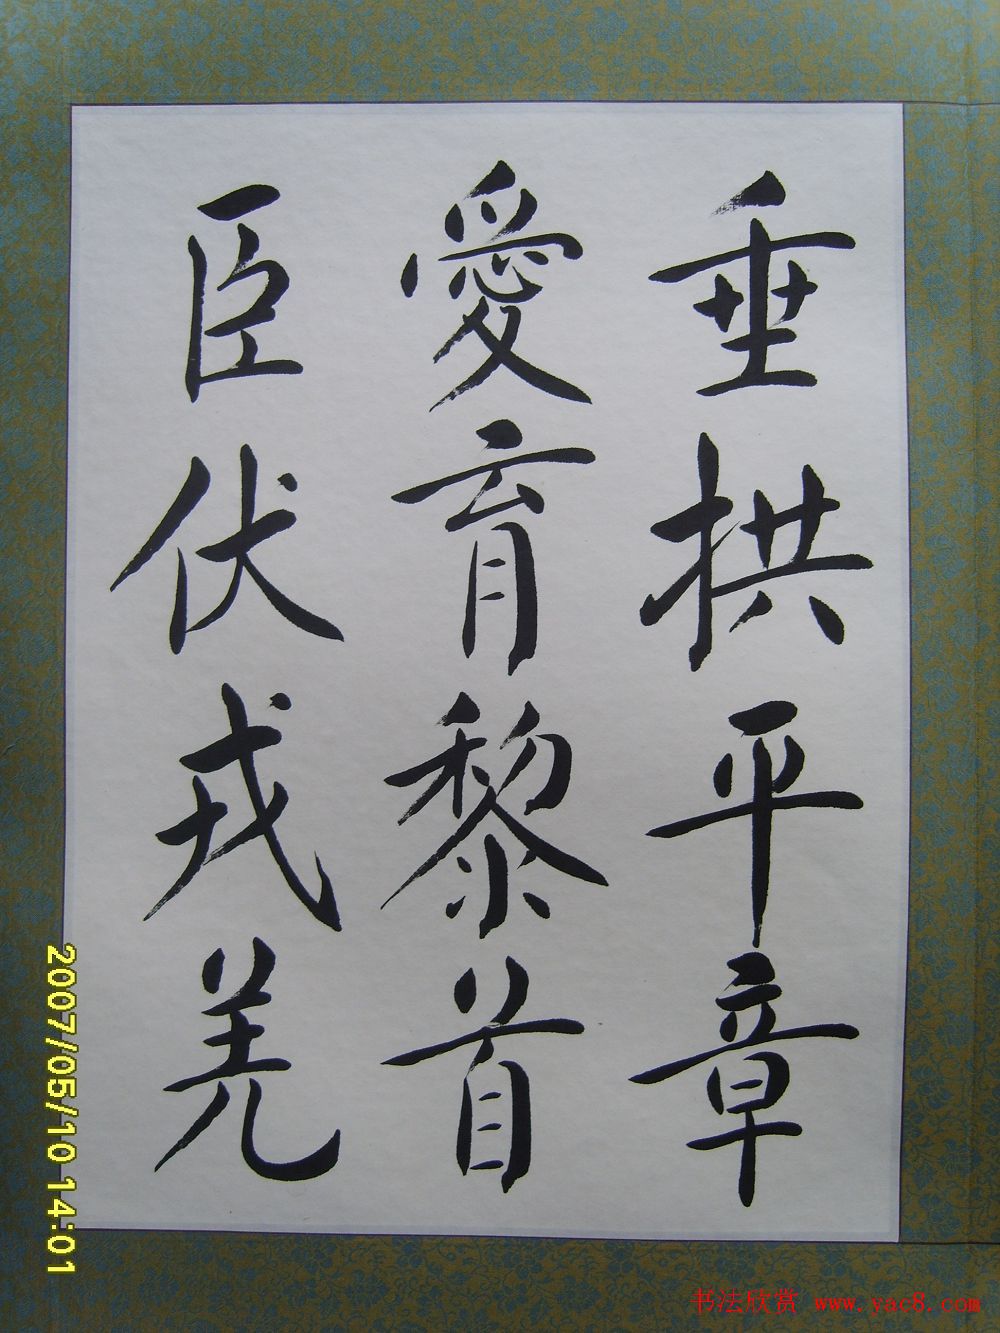 垂拱平章
愛育黎首
臣伏戎羌
2007/05/10 14:01
书法欣赏 www.yac8.com